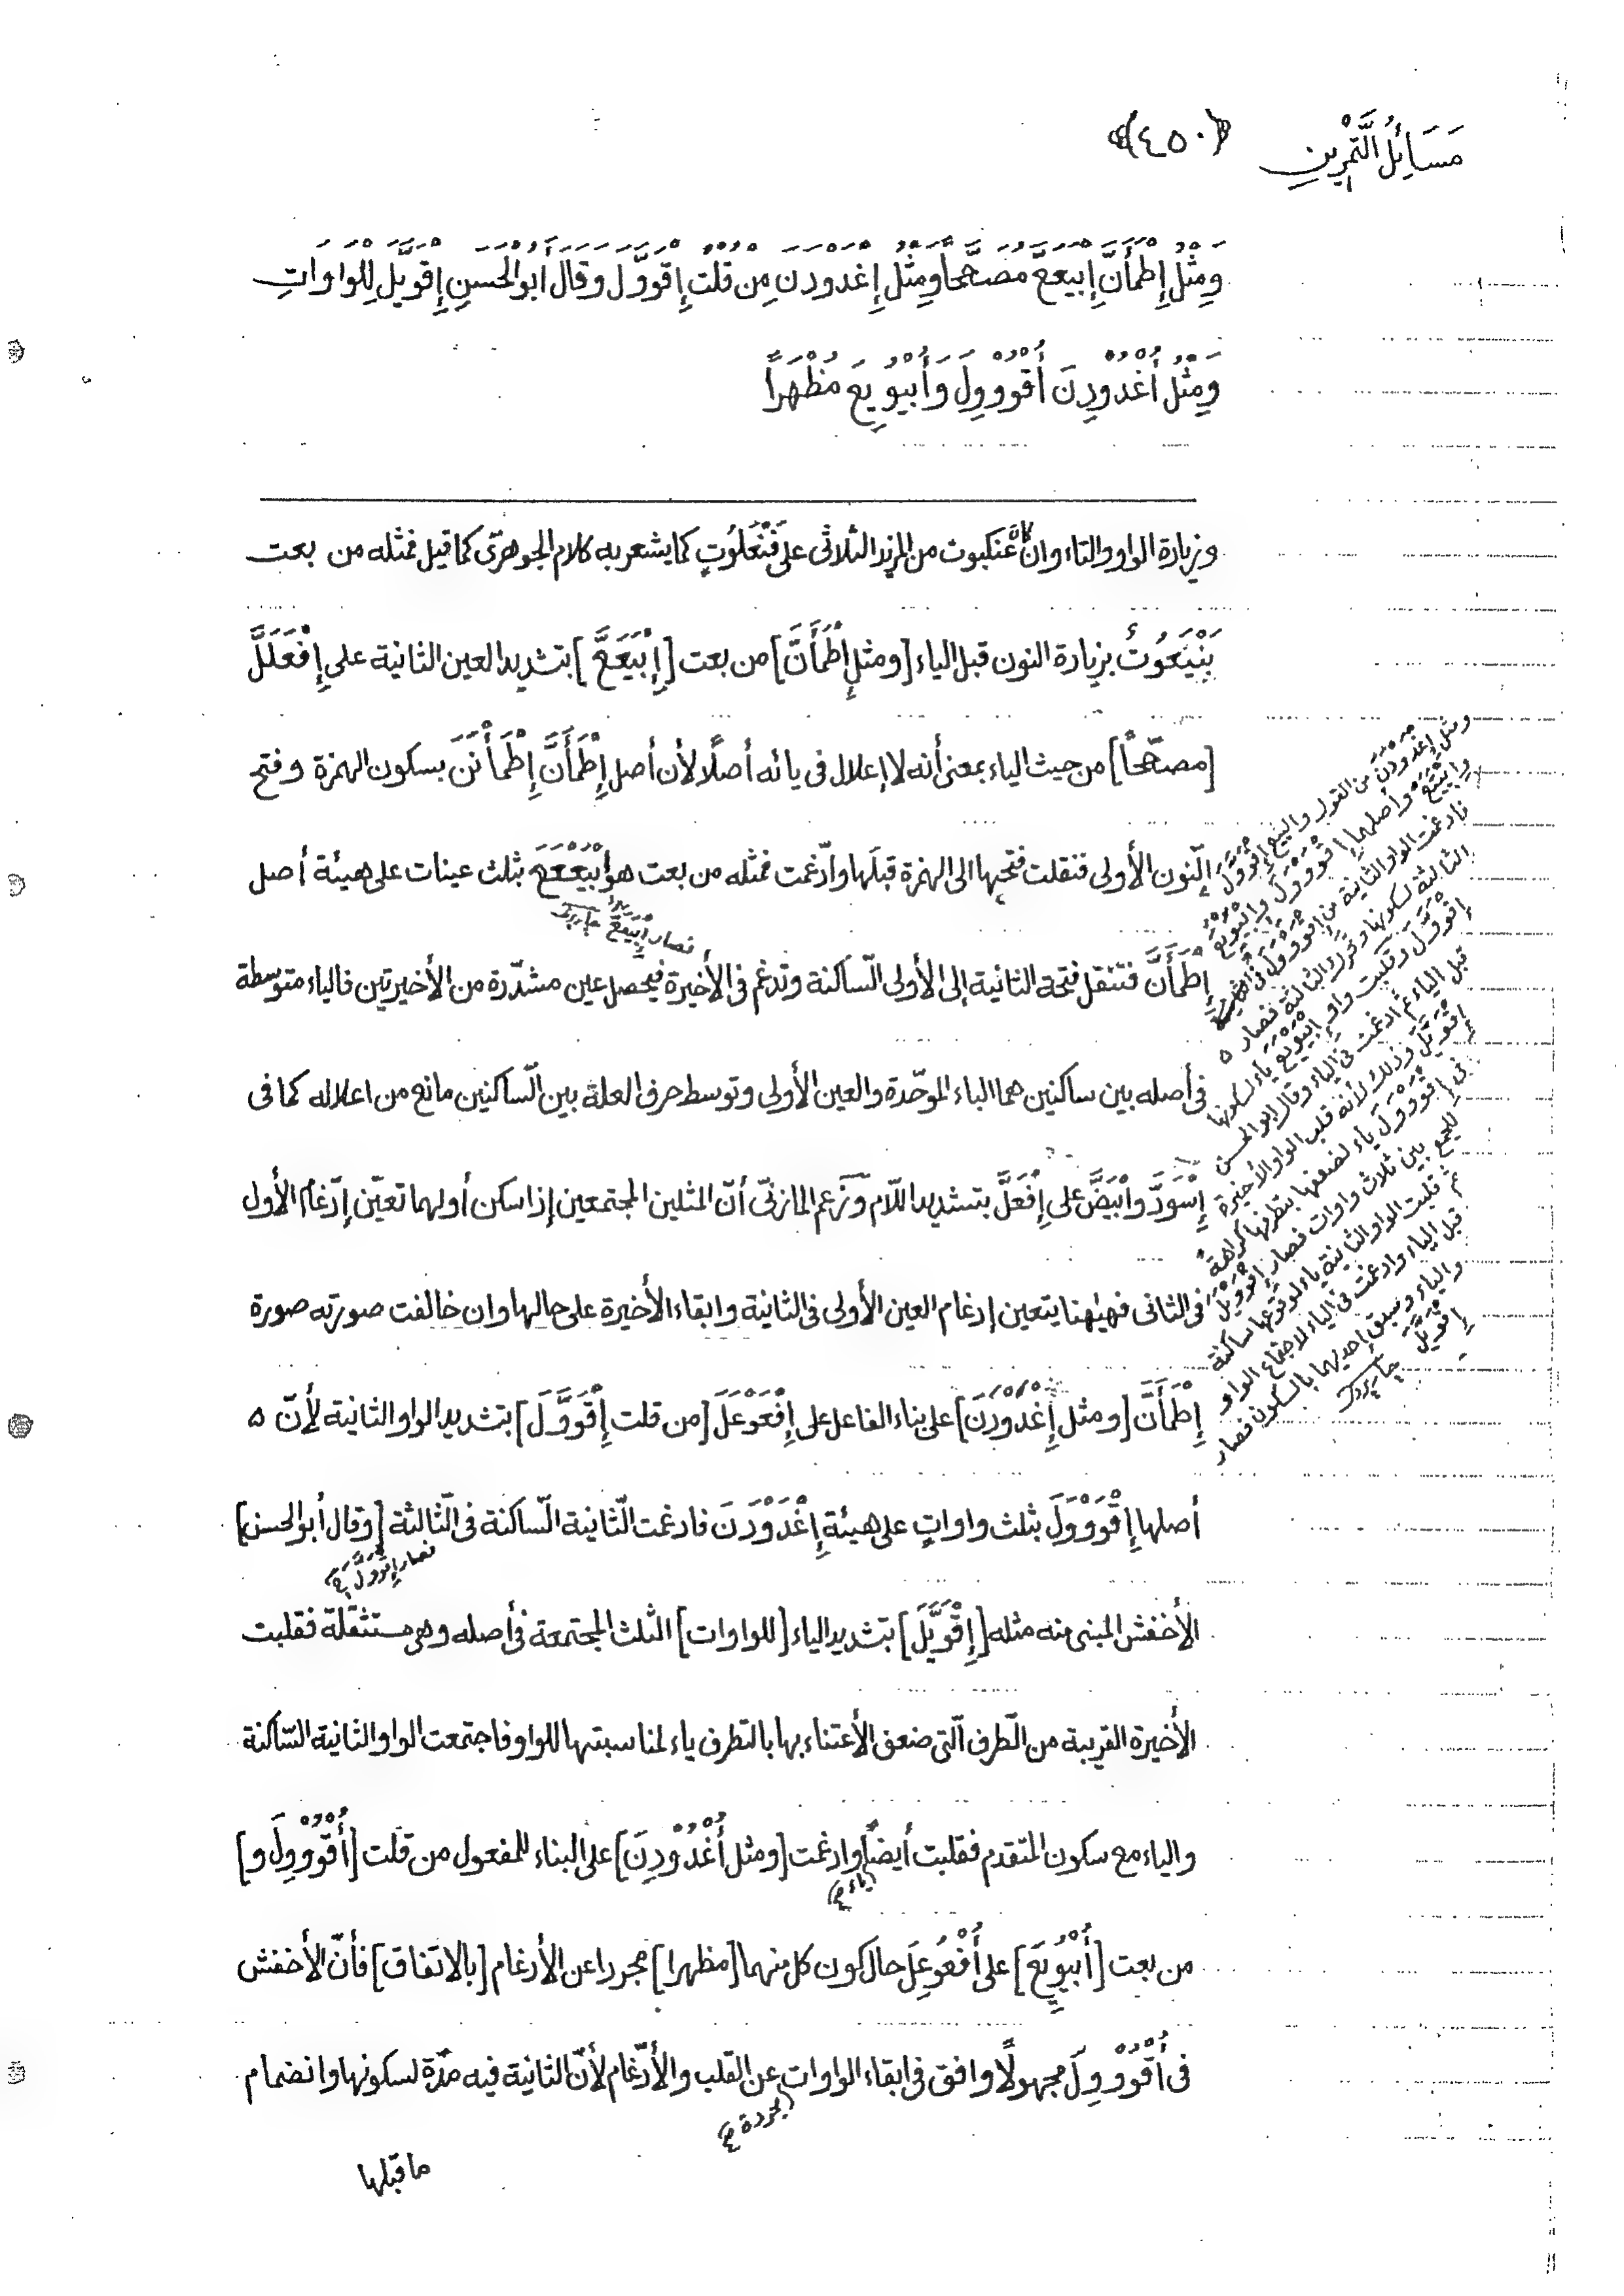 مَسَائِلُ التَّمْرِينِ ﴿٤٥٠﴾
وَمِثْلُ إِطْمَأَنَّ إِبْيَعَعَّ مُصَحَّحاً وَمِثْلُ إِغْدَوْدَنَ مِنْ قُلْتُ إِقْوَوَّلَ وَقَالَ أَبُو الْحَسَنِ إِقْوَيَّلَ لِلْوَاوَاتِ
وَمِثْلُ أُغْدُوْدِنَ أُقْوُوْوِلَ وَأُبْيُوْيِعَ مُظْهَراً
وزيادة الواو والتاء وان كان عنكبوت من المزيد الثلاثى على فَنْعَلُوُتٍ كما يشعر به كلام الجوهرى كما قيل فمثله من بعت
بَنْيَعُوُتٌ بزيادة النون قبل الياء [ومثل إِطْمَأَنَّ] من بعت [إِبْيَعَعَّ] بتشديد العين الثانية على إِفْعَلَلَّ
[مصحّحاً] من حيث الياء بمعنى أنه لا إعلال فى يائه أصلًا لأن أصل إِطْمَأَنَّ إِطْمَأْنَنَ بسكون الهمزة وفتح
النّون الأولى فنقلت فتحها الى الهمزة قبلها وادّغمت فمثله من بعت هو أبْيَعْعَعَ بثلث عينات على هيئة أصل
فصار إِبْيَعَعَّ جاربردى
إِطْمَأَنَّ فتنقل فتحة الثانية إلى الأولى السّاكنة وتدغم فى الأخيرة فيحصل عين مشدّدة من الأخيرتين فالياء متوسطة
فى أصله بين ساكنين هما الباء الموحّدة والعين الأولى وتوسط حرف العلة بين السّاكنين مانع من اعلاله كما فى
إِسْوَدَّ وابْيَضَّ على إِفْعَلَّ بتشديد اللّام وَزَعم المازنىّ أنّ المثلين المجتمعين إذا سكن أولهما تعيّن إدّغام الأول
فى الثانى فهيٰهنا يتعين إدغام العين الأولى فى الثانية وابقاء الأخيرة على حالها وان خالفت صورته صورة
إِطْمَأَنَّ [ومثل إِغْدَوْدَنَ] على بناء الفاعل على إِفْعَوْعَلَ [من قلت إِقْوَوَّلَ] بتشديد الواو الثانية لأنّ ٥
أصلها إِقْوَوْوَلَ بثلث واواتٍ على هيئة إِغْدَوْدَنَ فادغمت الثّانية السّاكنة فى الثّالثة [وقال أبو الحسن]
فصار إِقْوَوَّلَ
الأخفش المبنى منه مثله [إِقْوَيَّلَ] بتشديد الياء [للواوات] الثلث المجتمعة فى أصله وهى مستثقلة فقلبت
الأخيرة القريبة من الطّرف الّتى ضعف الأعتناء بها بالتطرف ياء لمناسبتها للواو فاجتمعت الواو الثانية السّاكنة
والياء مع سكون المتقدم فقلبت أيضاً وادغمت [ومثل أُغْدُوْدِنَ] على البناء للمفعول من قلت [أُقْوُوْوِلَ و]
(ياء م)
من بعت [أُبْيُوْيِعَ] على أُفْعُوْعِلَ حال كون كل منهما [مظهرا] مجردا عن الأدغام [بالاتفاق] فأنّ الأخفش
فى أُقْوُوْوِلَ مجهولًا وافق فى ابقاء الواوات عن القلب والأدّغام لأنّ الثانية فيه مدّة لسكونها وانضمام
ما قبلها
ومثل إغدَوْدَنَ من القول والبيع إِقْوَوَّلَ
وإِبْيَيَّعَ وأصلهما إِقْوَوْوَلَ وإِبْيَوْيَعَ
فادغمت الواو الثانية من إقووول فى
الثالثة لسكونها وتحرك الثالثة فصار ٥
إِقْوَوَّلَ وقلبت واو إِبْيَوْيَعَ ياء لسكونها
قبل الياء ثم ادغمت فى الياء وقال ابو الحسن
إِقْوَيَّلَ وذلك لأنه قلب الواو الأخيرة
فى إقوووَل ياء لضعفها بتطرفها كراهةً
للجمع بين ثلاث واوات فصار إِقْوَوْيَلَ
ثم قلبت الواو الثانية ياء لوقوعها ساكنة
قبل الياء وادغمت فى الياء لاجتماع الواو
والياء وسبق احديهما بالسكون فصار
إِقْوَيَّلَ جاربردى